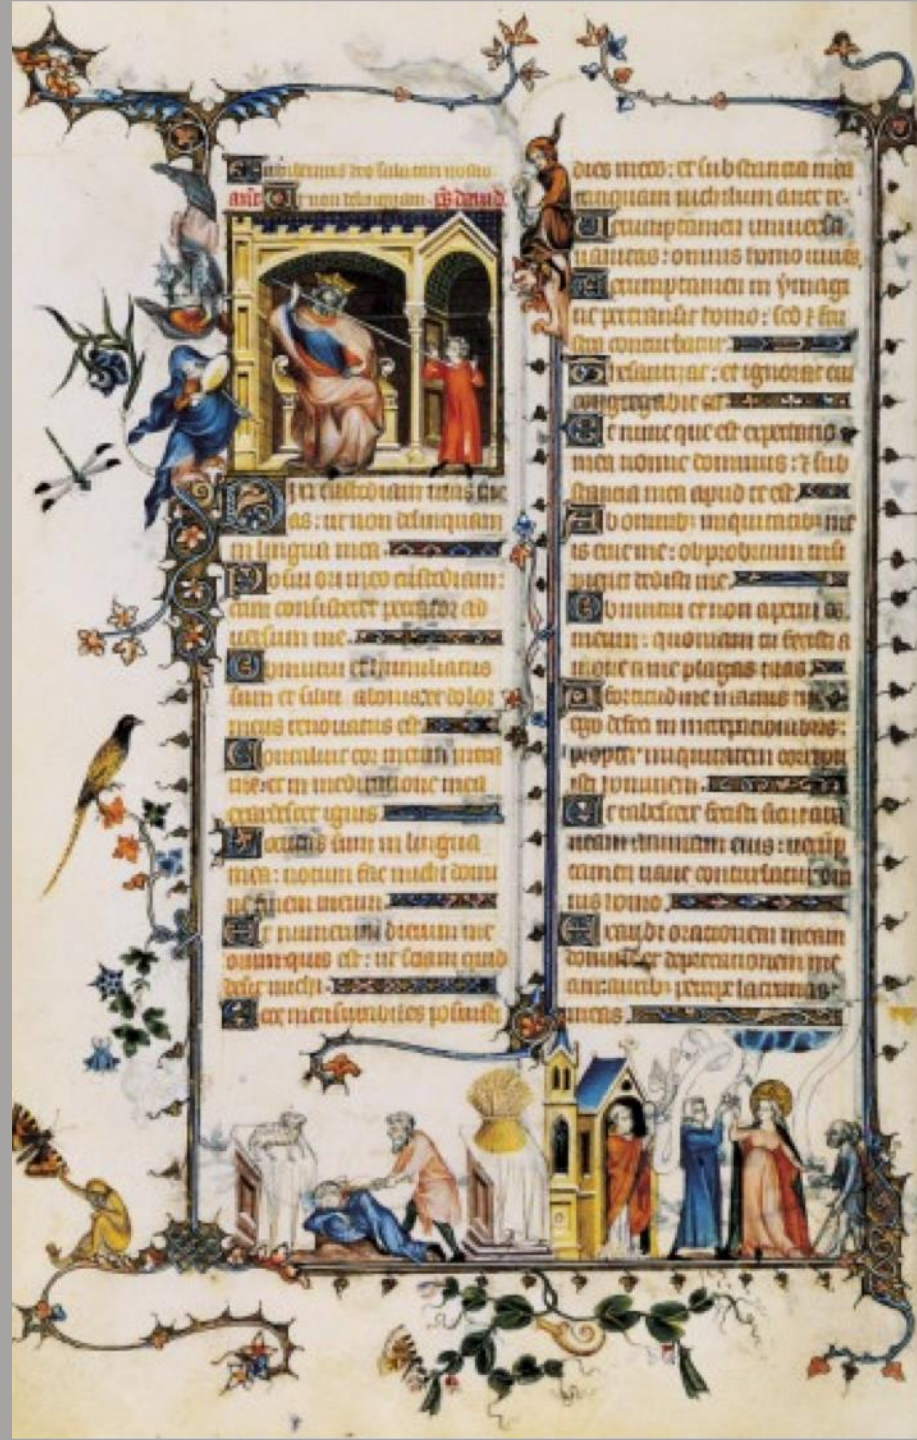 deo salutari nostro
Ut non delinquam
Dixi custodiam uias me
as: ut non delinquam
in lingua mea.
Posui ori meo custodiam:
cum consisteret peccator ad
uersum me.
Obmutui et humiliatus
sum et silui a bonis: et dolor
meus renouatus est.
Concaluit cor meum intra
me: et in meditatione mea
exardescet ignis.
Locutus sum in lingua
mea: notum fac michi domi
ne finem meum.
Et numerum dierum me
orum quis est: ut sciam quid
desit michi.
Ecce mensurabiles posuisti
dies meos: et substancia mea
tanquam nichilum ante te.
Uerumptamen uniuersa
uanitas: omnis homo uiuens.
Uerumptamen in ymagi
ne pertransit homo: sed et fru
stra conturbatur.
Thesaurizat: et ignorat cui
congregabit ea.
Et nunc que est expectatio
mea nonne dominus: et sub
stancia mea apud te est.
Ab omnibus iniquitatibus me
is erue me: obprobrium insi
pienti dedisti me.
Obmutui et non aperui os
meum: quoniam tu fecisti a
moue a me plagas tuas.
A fortitudine manus tue
ego defeci in increpationibus:
propter iniquitatem corripu
isti hominem.
Et tabescere fecisti sicut ara
neam animam eius: uerump
tamen uane conturbatur om
nis homo.
Exaudi orationem meam
domine et deprecationem me
am: auribus percipe lacrimas
meas.